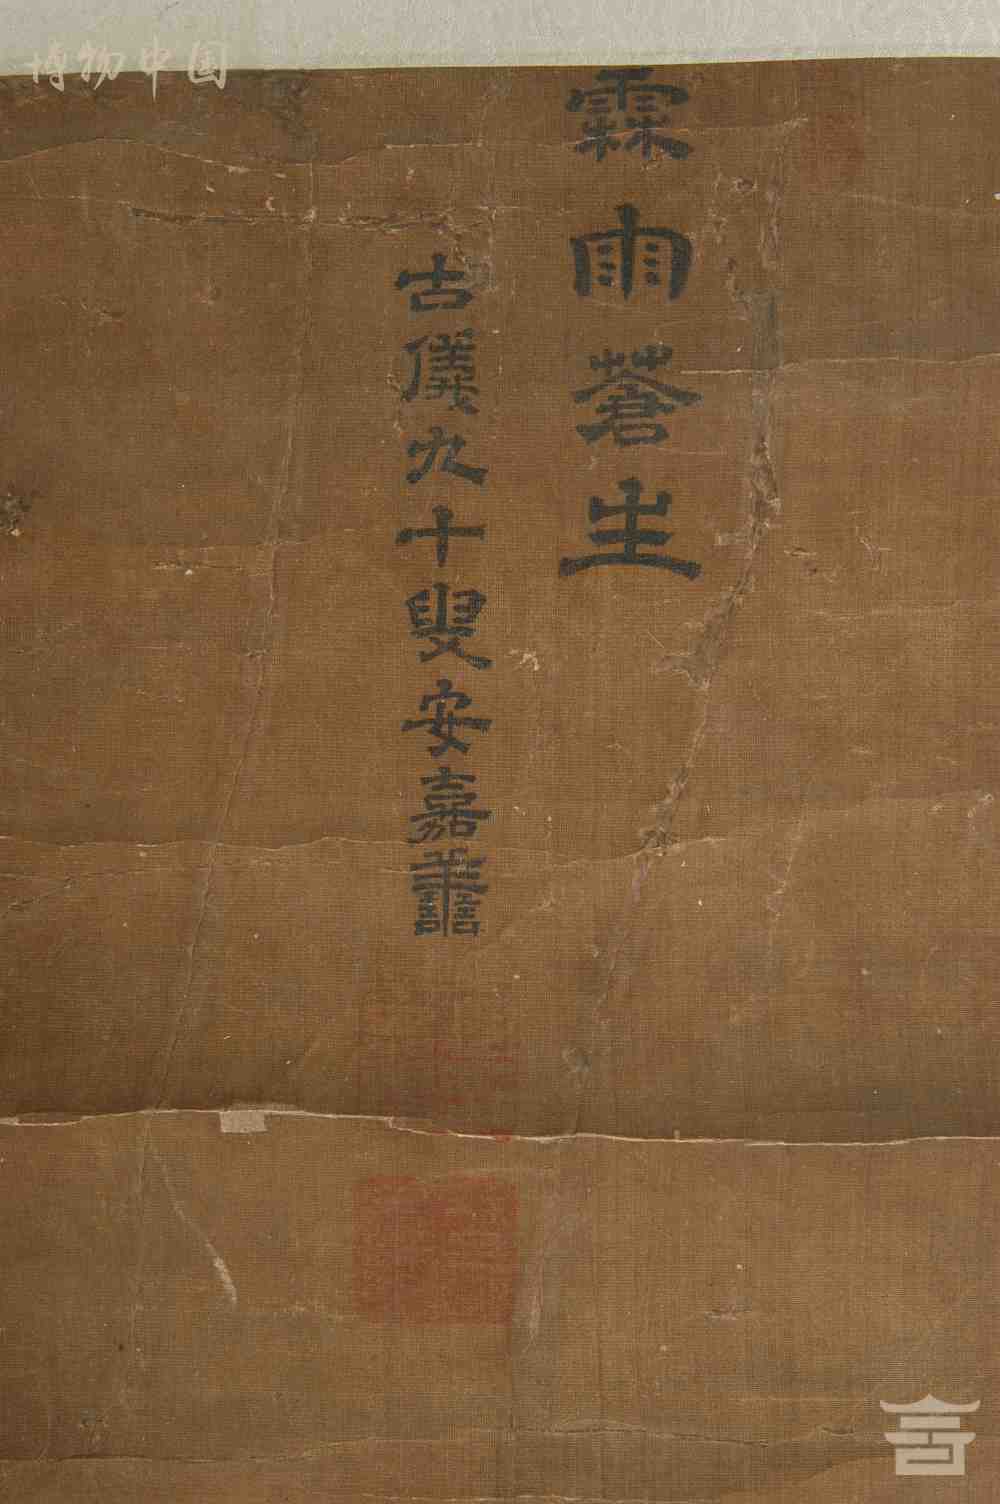 霖雨蒼生
古儀九十叟安嘉善
博物中国